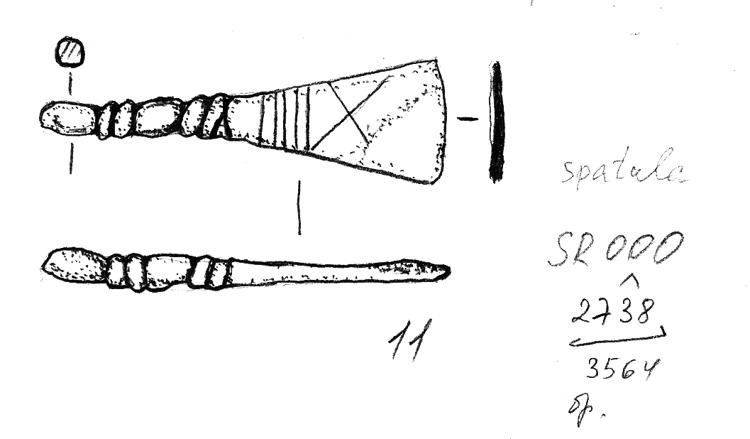 spatula
SR 000
^
2738
3564
бр.
11